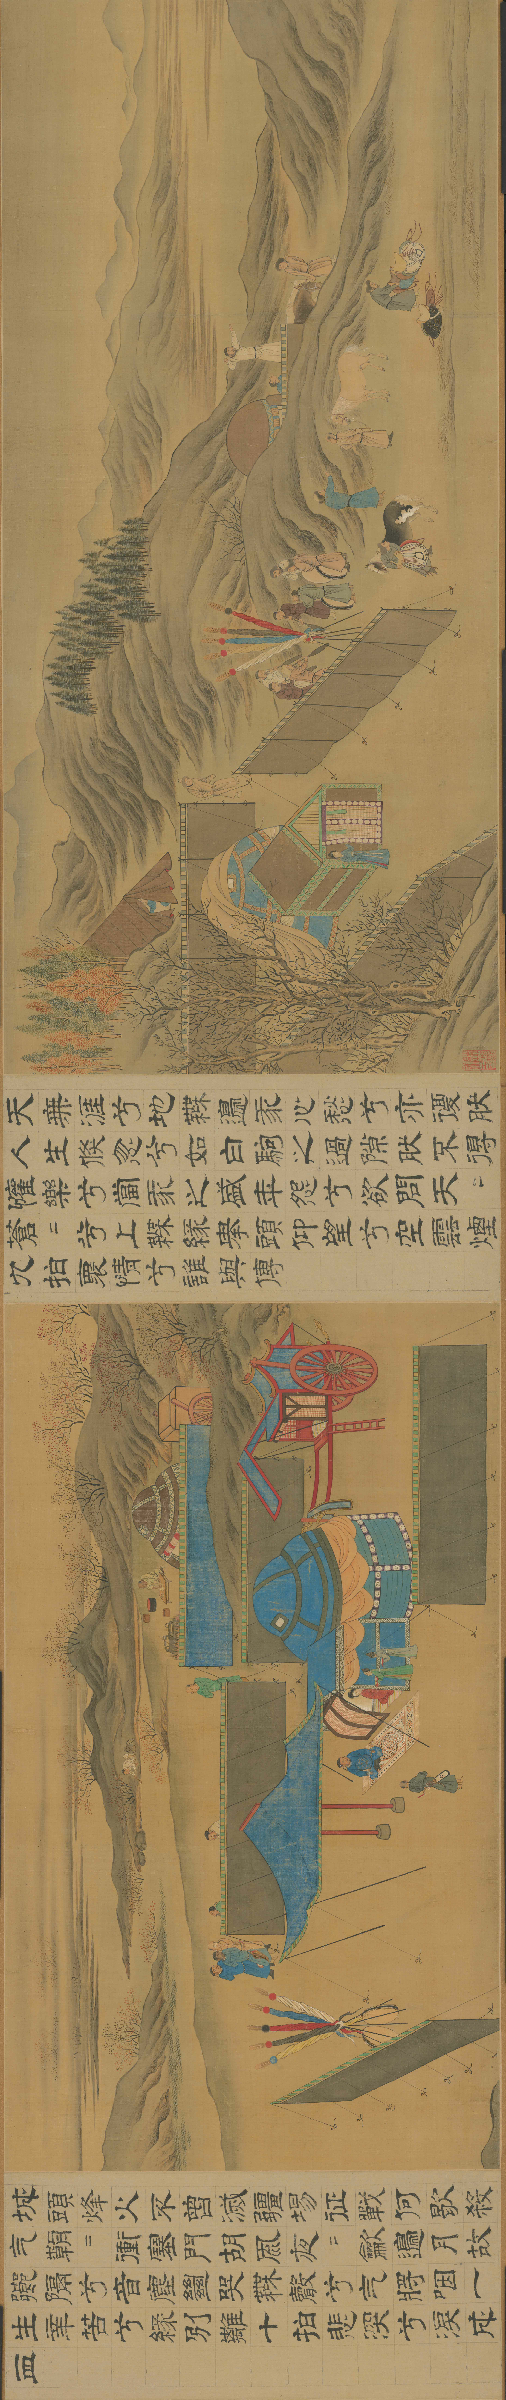 天無涯兮地無邊我心愁兮亦復然
人生倏忽兮如白駒之過隙然不得=
懽樂兮當我之盛年怨兮欲問天=
蒼=兮上無緣舉頭仰望兮空雲煙
九拍褱情兮誰與傳
城頭烽火不曾滅疆場征戰何歇殺
气朝=衝塞門胡風夜=歙邊月故
鄉隔兮音塵絕哭無聲兮气將咽一
生辛苦兮緣別離十拍悲深兮淚成
血